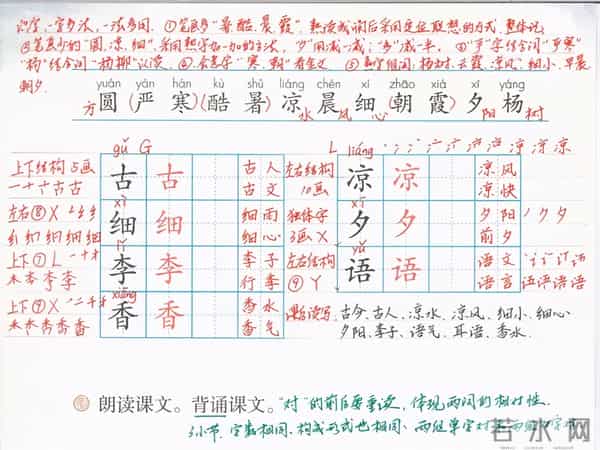 识字,一字多法,一法多用。①笔画多"暑、酷、晨、霞",熟读成诵后采用定位联想的方式,整体记。
②笔画少的"圆、凉、细"采用熟字加一加的方法,"夕"用减一减:"多"减一半。③"严"字结合词"严寒"
"杨"结合词"杨柳"认读。④会意字"寒、朝"看字义 ⑤熟字组词:杨树、云霞、凉风、细小、早晨
朝夕。
yuán yán hán kù shǔ liáng chén xì zhāo xiá xī yáng
方圆(严寒)(酷暑)凉水晨风细心(朝霞)夕阳杨树
gǔ G L liáng
上下结构 5画 古 古 古人 古文
一十十古古
左右结构 10画 凉 凉 凉风 凉快
xì
左右⑧ 细 细 细雨 细心
xī
独体字 3画 夕 夕 夕阳 前夕
lǐ
上下⑦ L 李 李 李子 行李
木本李李
yǔ
左右结构 ⑨ Y 语 语 语文 语言
xiāng
上下⑨ X 香 香 香水 香气
禾香香香
读写 古今、古人、凉水、凉风、细小、细心
夕阳、李子、语气、耳语、香水。
朗读课文。背诵课文。"对"的前后要重读,体现两词的相对性。
3小节,字数相同、构成形式也相同、两组单字对
若水网